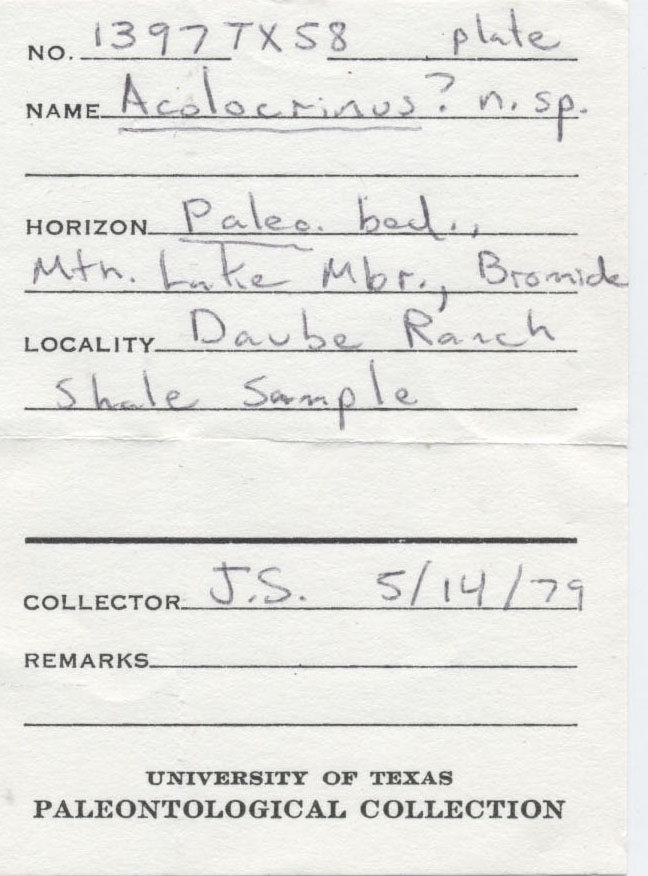 NO. 1397TX58 plate
NAME Acolocrinus? n. sp.
HORIZON Paleo. bed.,
Mtn. Lake Mbr., Bromide
LOCALITY Daube Ranch
Shale Sample
COLLECTOR J.S. 5/14/79
REMARKS
UNIVERSITY OF TEXAS
PALEONTOLOGICAL COLLECTION